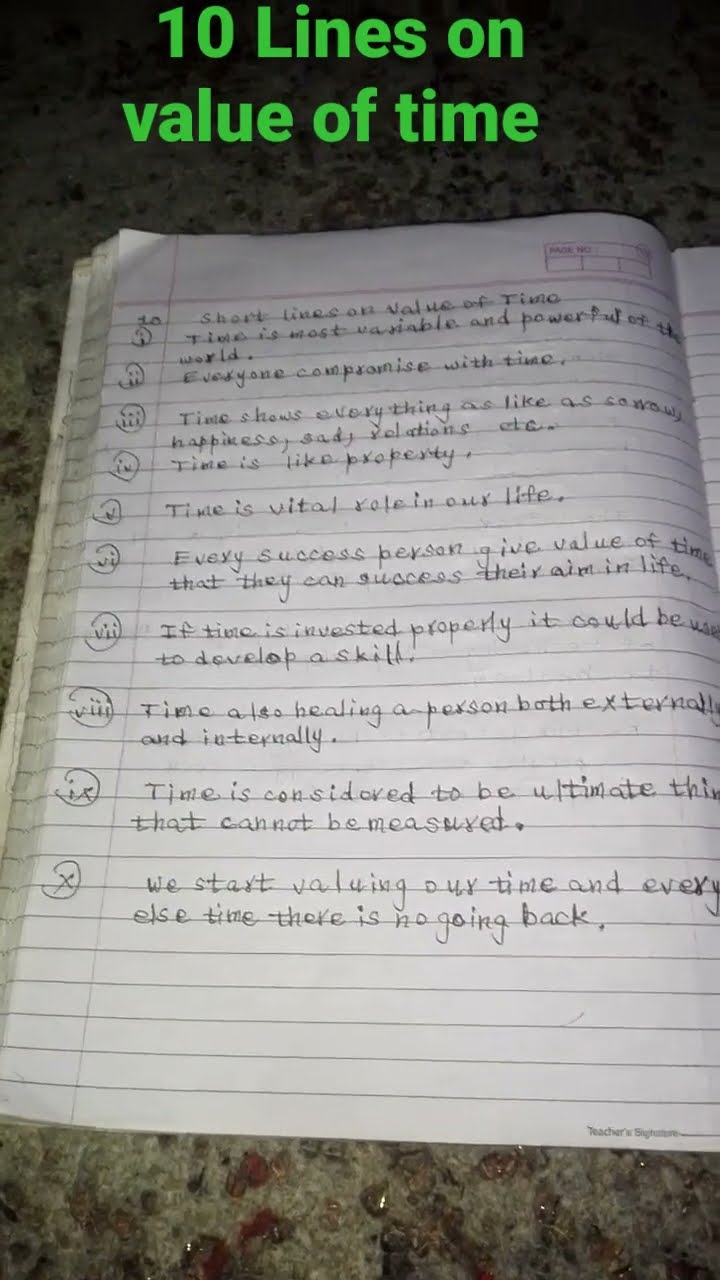 10 Lines on
value of time
PAGE NO :
10 Short lines on Value of Time
i Time is most variable and powerful of the
world.
ii Everyone compromise with time.
iii Time shows everything as like as sorrow,
happiness, sad, relations etc.
iv Time is like property.
v Time is vital role in our life.
vi Every success person give value of time
that they can success their aim in life.
vii If time is invested properly it could be use
to develop a skill.
viii Time also healing a person both externally
and internally.
ix Time is considered to be ultimate thin
that cannot be measured.
x We start valuing our time and every
else time there is no going back.
Teacher's Signature